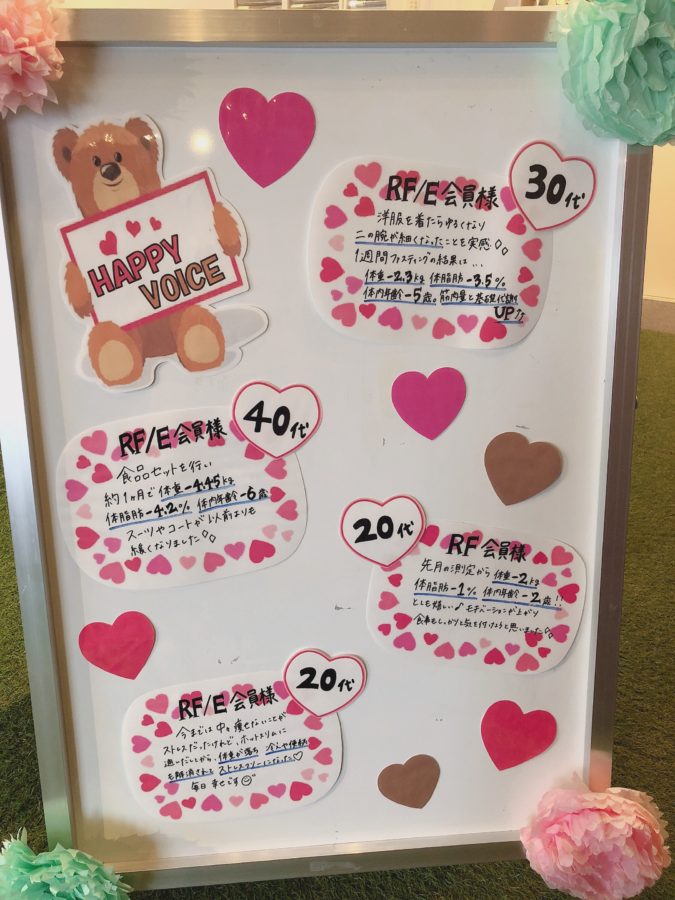 HAPPY
VOICE
30代
RF/E 会員様
洋服を着たらゆるくなり
二の腕が細くなったことを実感
1週間ファスティングの結果は…
体重-2.3kg 体脂肪-3.5%
体内年齢-5歳。筋肉量と基礎代謝が
UP
40代
RF/E 会員様
食品セットを行い
約1ヵ月で体重-4.45kg
体脂肪-4.2% 体内年齢-6歳
スーツやコートが以前よりも
緩くなりました
20代
RF 会員様
先月の測定から 体重-2kg
体脂肪-1% 体内年齢-2歳!!
とても嬉しい♪モチベーションが上がり
食事もしっかりと気を付けようと思いました
20代
RF/E 会員様
今までは中々痩せないことが
ストレスだったけれど、ホットスリムに
通いだしてから、体重が落ち 冷えや便秘
も解消されて ストレスフリーになった♡
毎日幸せです